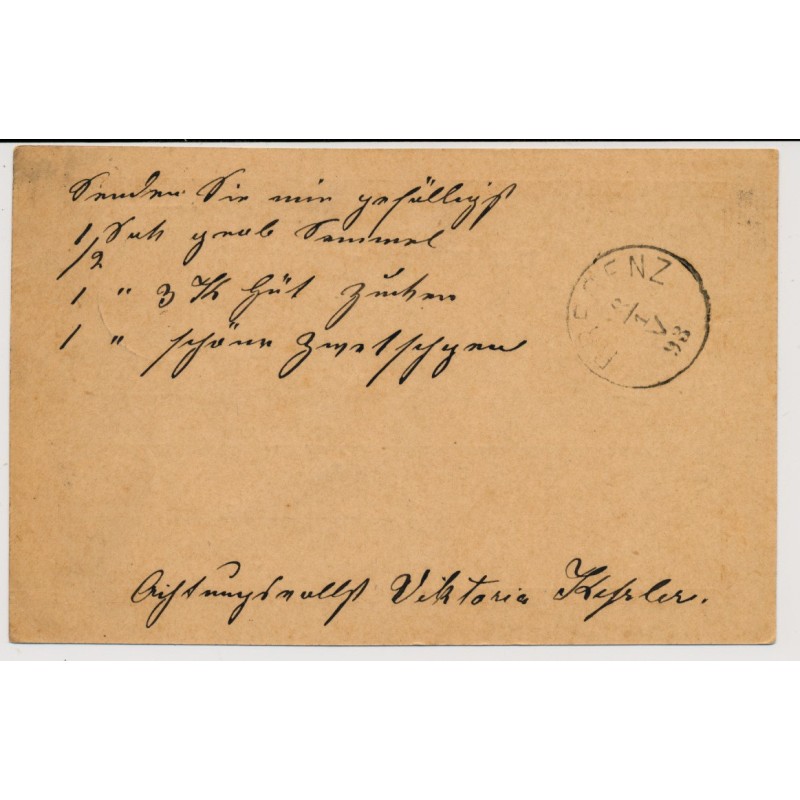 Senden Sie mir gefälligst
1/2 Sak grob Semmel
1 " 3 K Hüt Zucker
1 " schöne Zwetschgen
BREGENZ
93
Achtungsvollst Viktoria Keßler.